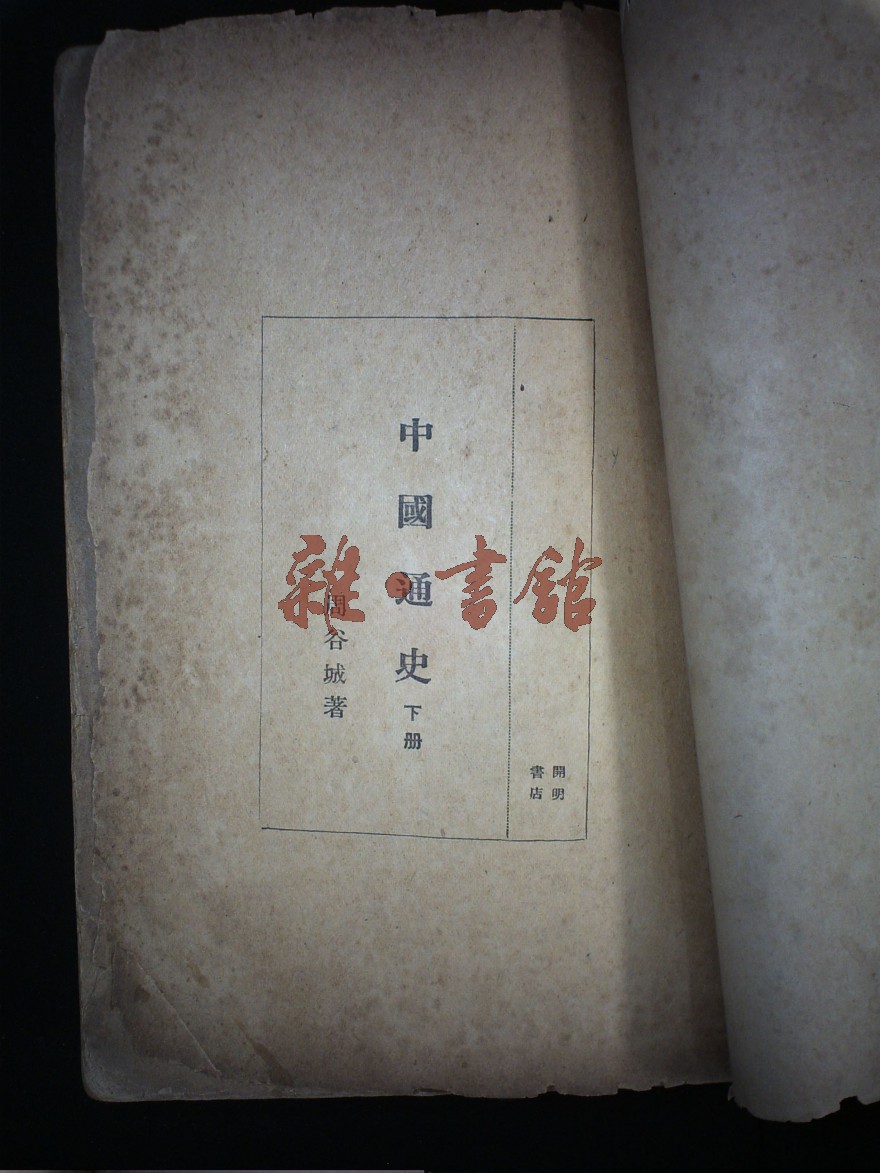 開明
書店
中國通史下册
周谷城著
雜·書館